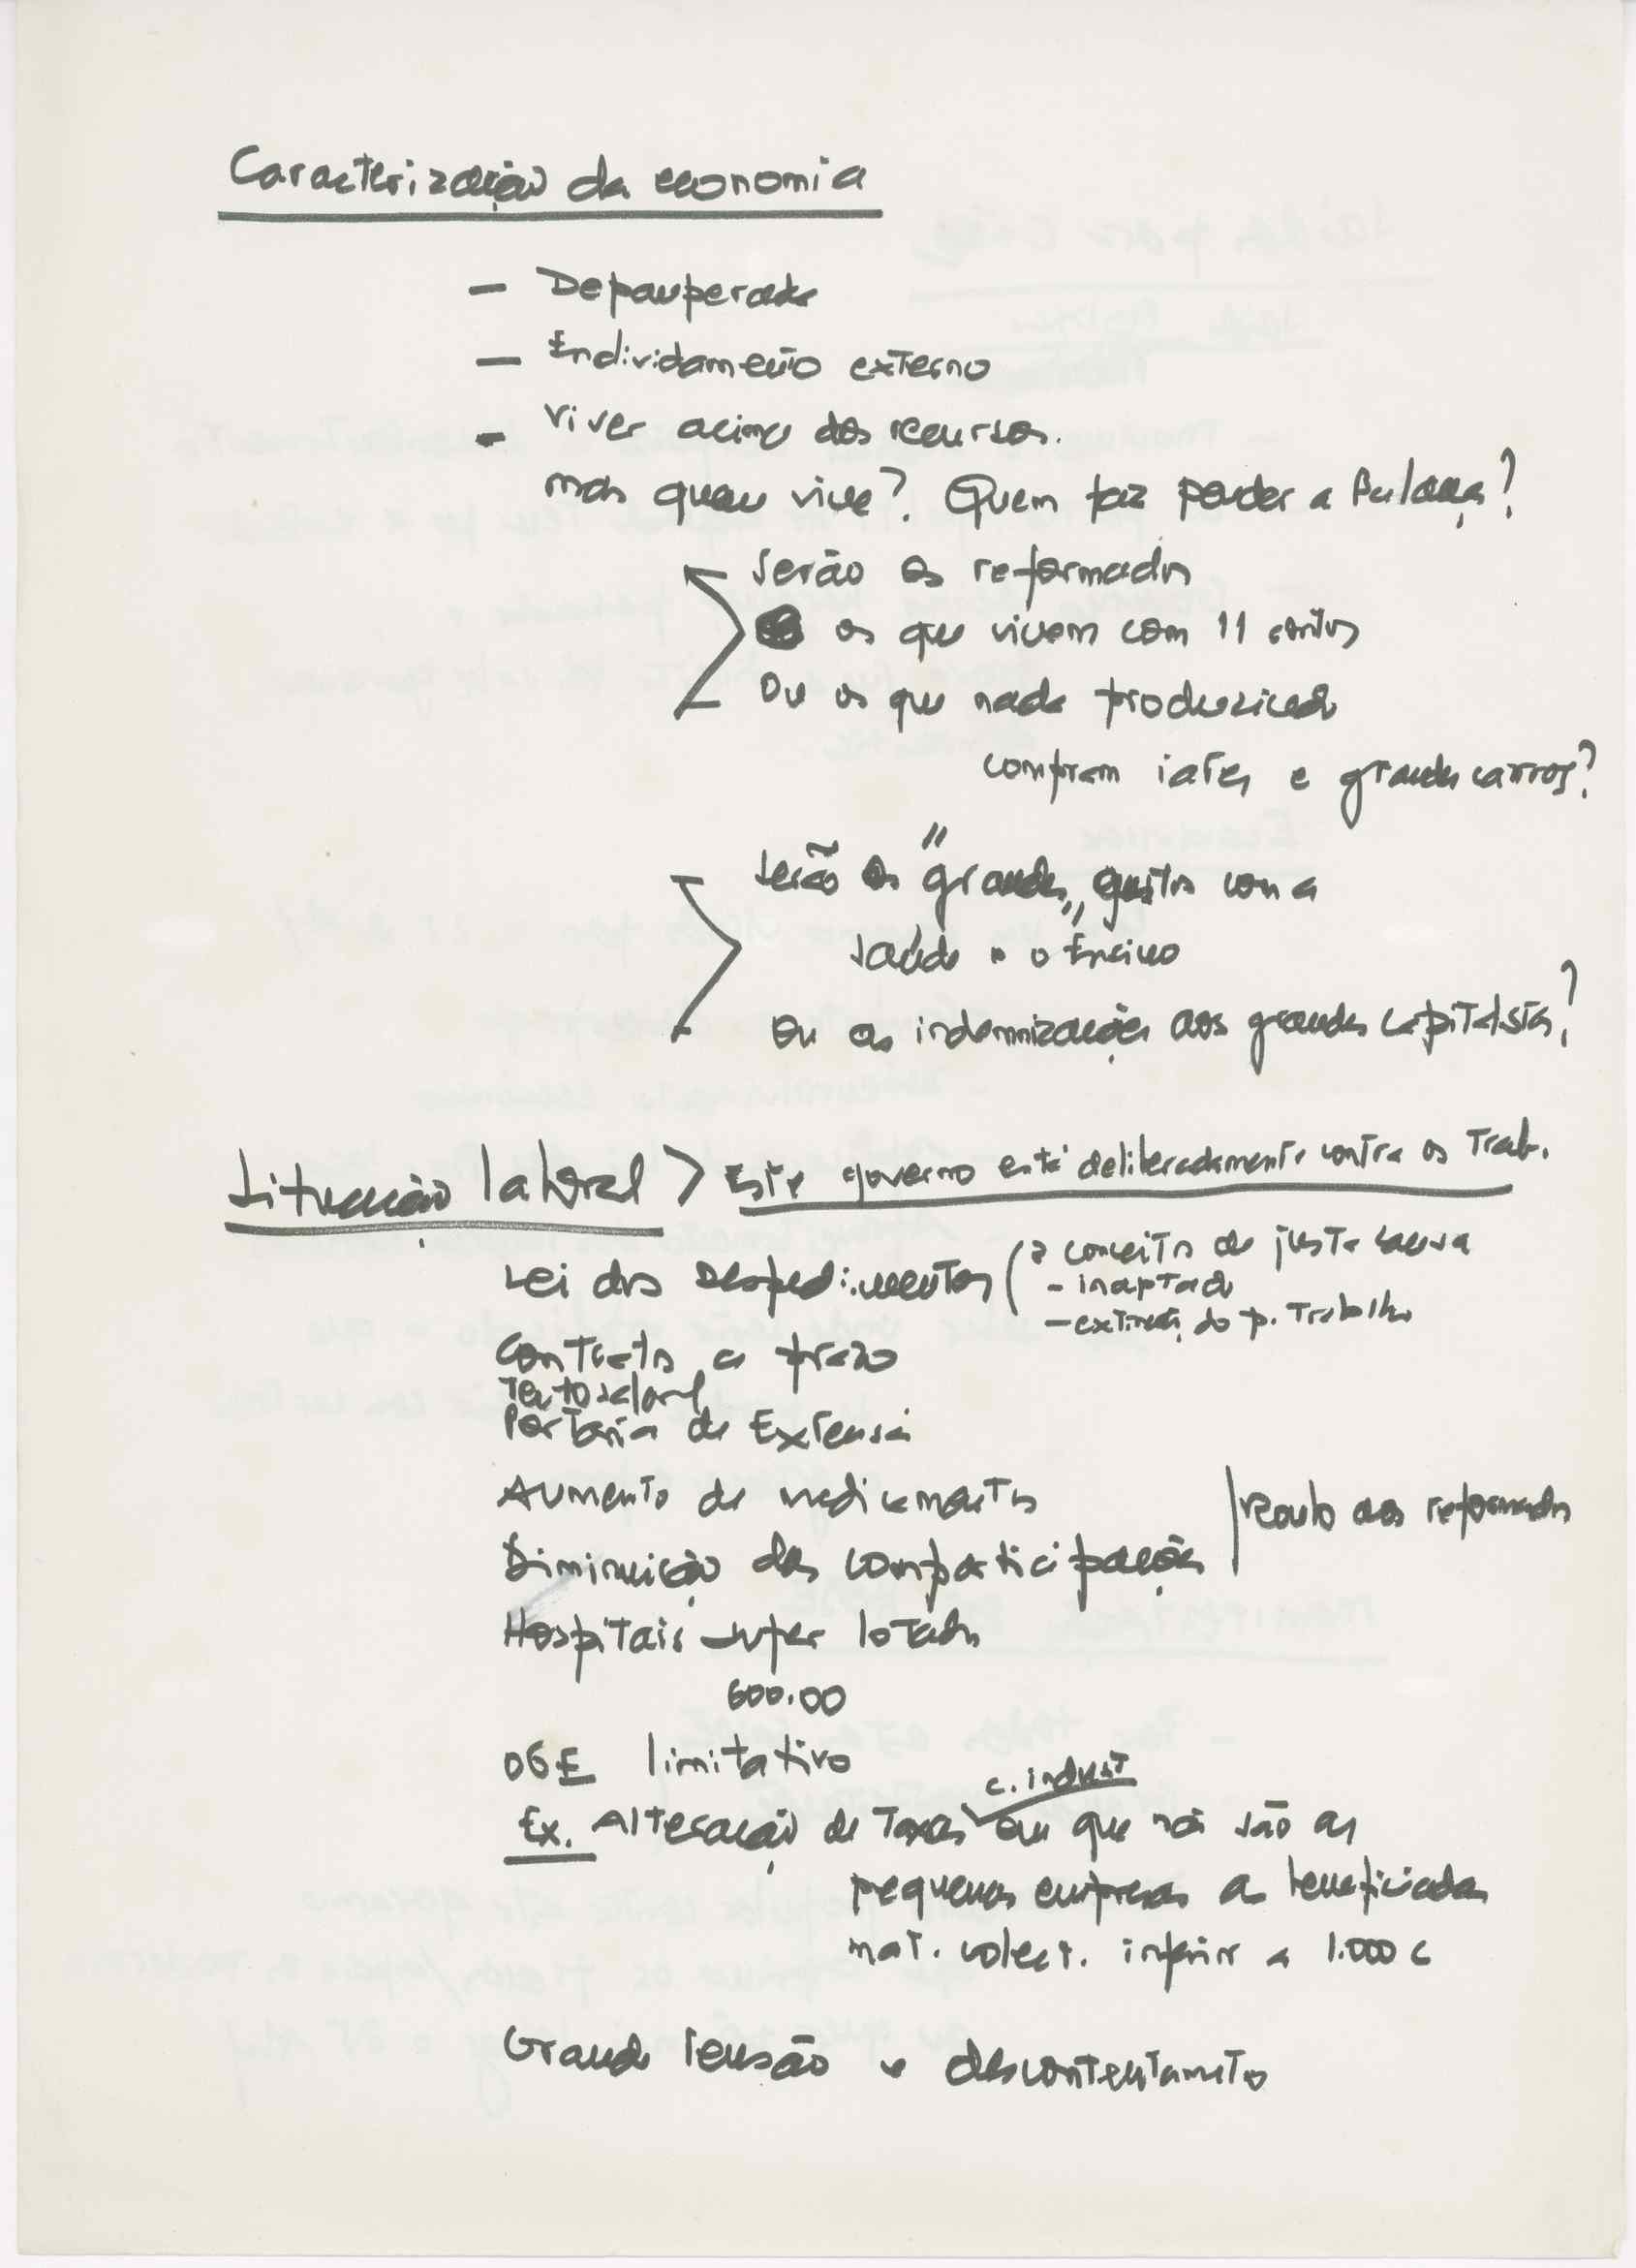 Caracterização da economia
- Depauperada
- Endividamento externo
- Viver acima dos recursos.
mas quem vive? Quem faz pender a balança?
Serão os reformados
os que vivem com 11 contos
Ou os que nada produzindo
compram iates e grandes carros?
Serão os "grandes" gastos com a
saúde e o Ensino
Ou as indemnizações aos grandes capitalistas?
Situação laboral > Este governo está deliberadamente contra os Trab.
Lei dos Despedimentos ( conceito de justa causa
- inaptado
- extinção do p. Trabalho
Contrato a prazo
Tecto salarial
Portaria de Extensão
Aumento de medicamentos
Diminuição das comparticipações | aos reformados
Hospitais super lotados
600.00
OGE limitativo
c. indust
Ex. Alteração de Taxas em que não são as
pequenas empresas as beneficiadas
mat. colect. inferior a 1.000 c
Grande Tensão e descontentamento